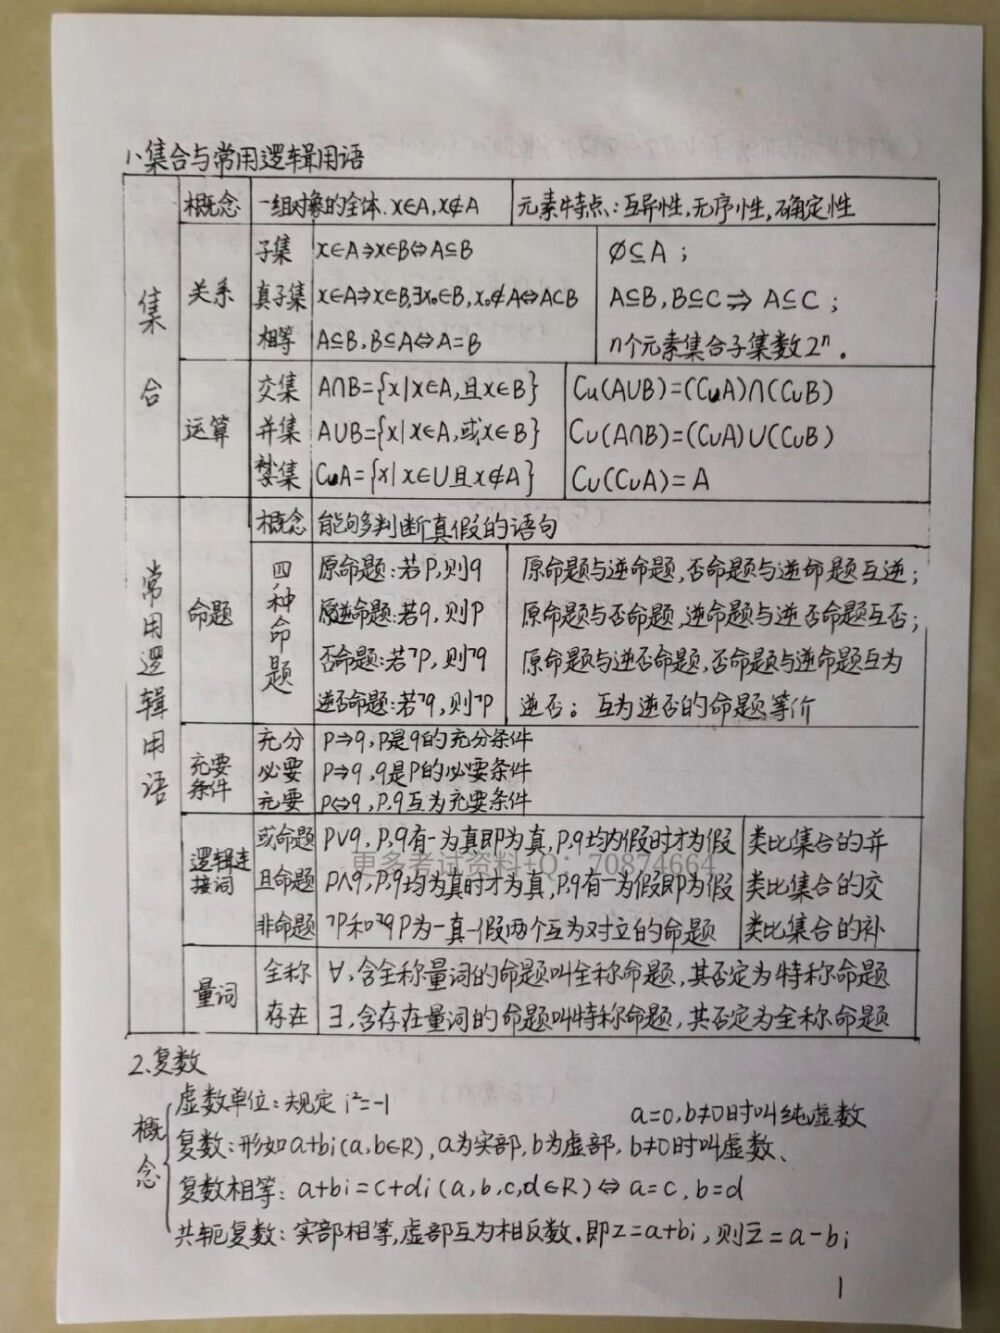 1、集合与常用逻辑用语
集合
概念 一组对象的全体. x∈A, x∉A 元素特点: 互异性, 无序性, 确定性
关系
子集 x∈A⇒x∈B⇔A⊆B ∅⊆A ;
真子集 x∈A⇒x∈B,∃x₀∈B, x₀∉A⇔A⊂B A⊆B, B⊆C ⇒ A⊆C ;
相等 A⊆B, B⊆A⇔A=B n个元素集合子集数2ⁿ.
运算
交集 A∩B={x|x∈A,且x∈B} Cu(A∪B)=(CuA)∩(CuB)
并集 A∪B={x|x∈A,或x∈B} Cu(A∩B)=(CuA)∪(CuB)
集 CuA={x|x∈U且x∉A} Cu(CuA)=A
常用逻辑用语
命题
概念 能够判断真假的语句
四种命题
原命题:若P,则q 原命题与逆命题,否命题与逆命题互逆;
逆命题:若q,则P 原命题与否命题,逆命题与逆否命题互否;
否命题:若¬P,则¬q 原命题与逆否命题,否命题与逆命题互为
逆否命题:若¬q,则¬P 逆否。互为逆否的命题等价
充要条件
充分 P⇒q, P是q的充分条件
必要 P⇒q, q是P的必要条件
充要 P⇔q, P,q互为充要条件
逻辑连接词
或命题 P∨q, P,q有一为真即为真, P,q均为假时才为假 类比集合的并
更多考试资料+Q: 70874664
且命题 P∧q, P,q均为真时才为真, P,q有一为假即为假 类比集合的交
非命题 ¬P和P为一真一假两个互为对立的命题 类比集合的补
量词
全称 ∀, 含全称量词的命题叫全称命题, 其否定为特称命题
存在 ∃, 含存在量词的命题叫特称命题, 其否定为全称命题
2.复数
概念
虚数单位:规定 i²=-1
a=0, b≠0时叫纯虚数
复数:形如a+bi(a,b∈R), a为实部, b为虚部, b≠0时叫虚数、
复数相等: a+bi=c+di(a,b,c,d∈R)⇔a=c, b=d
共轭复数: 实部相等,虚部互为相反数.即z=a+bi, 则z̅=a-bi
1